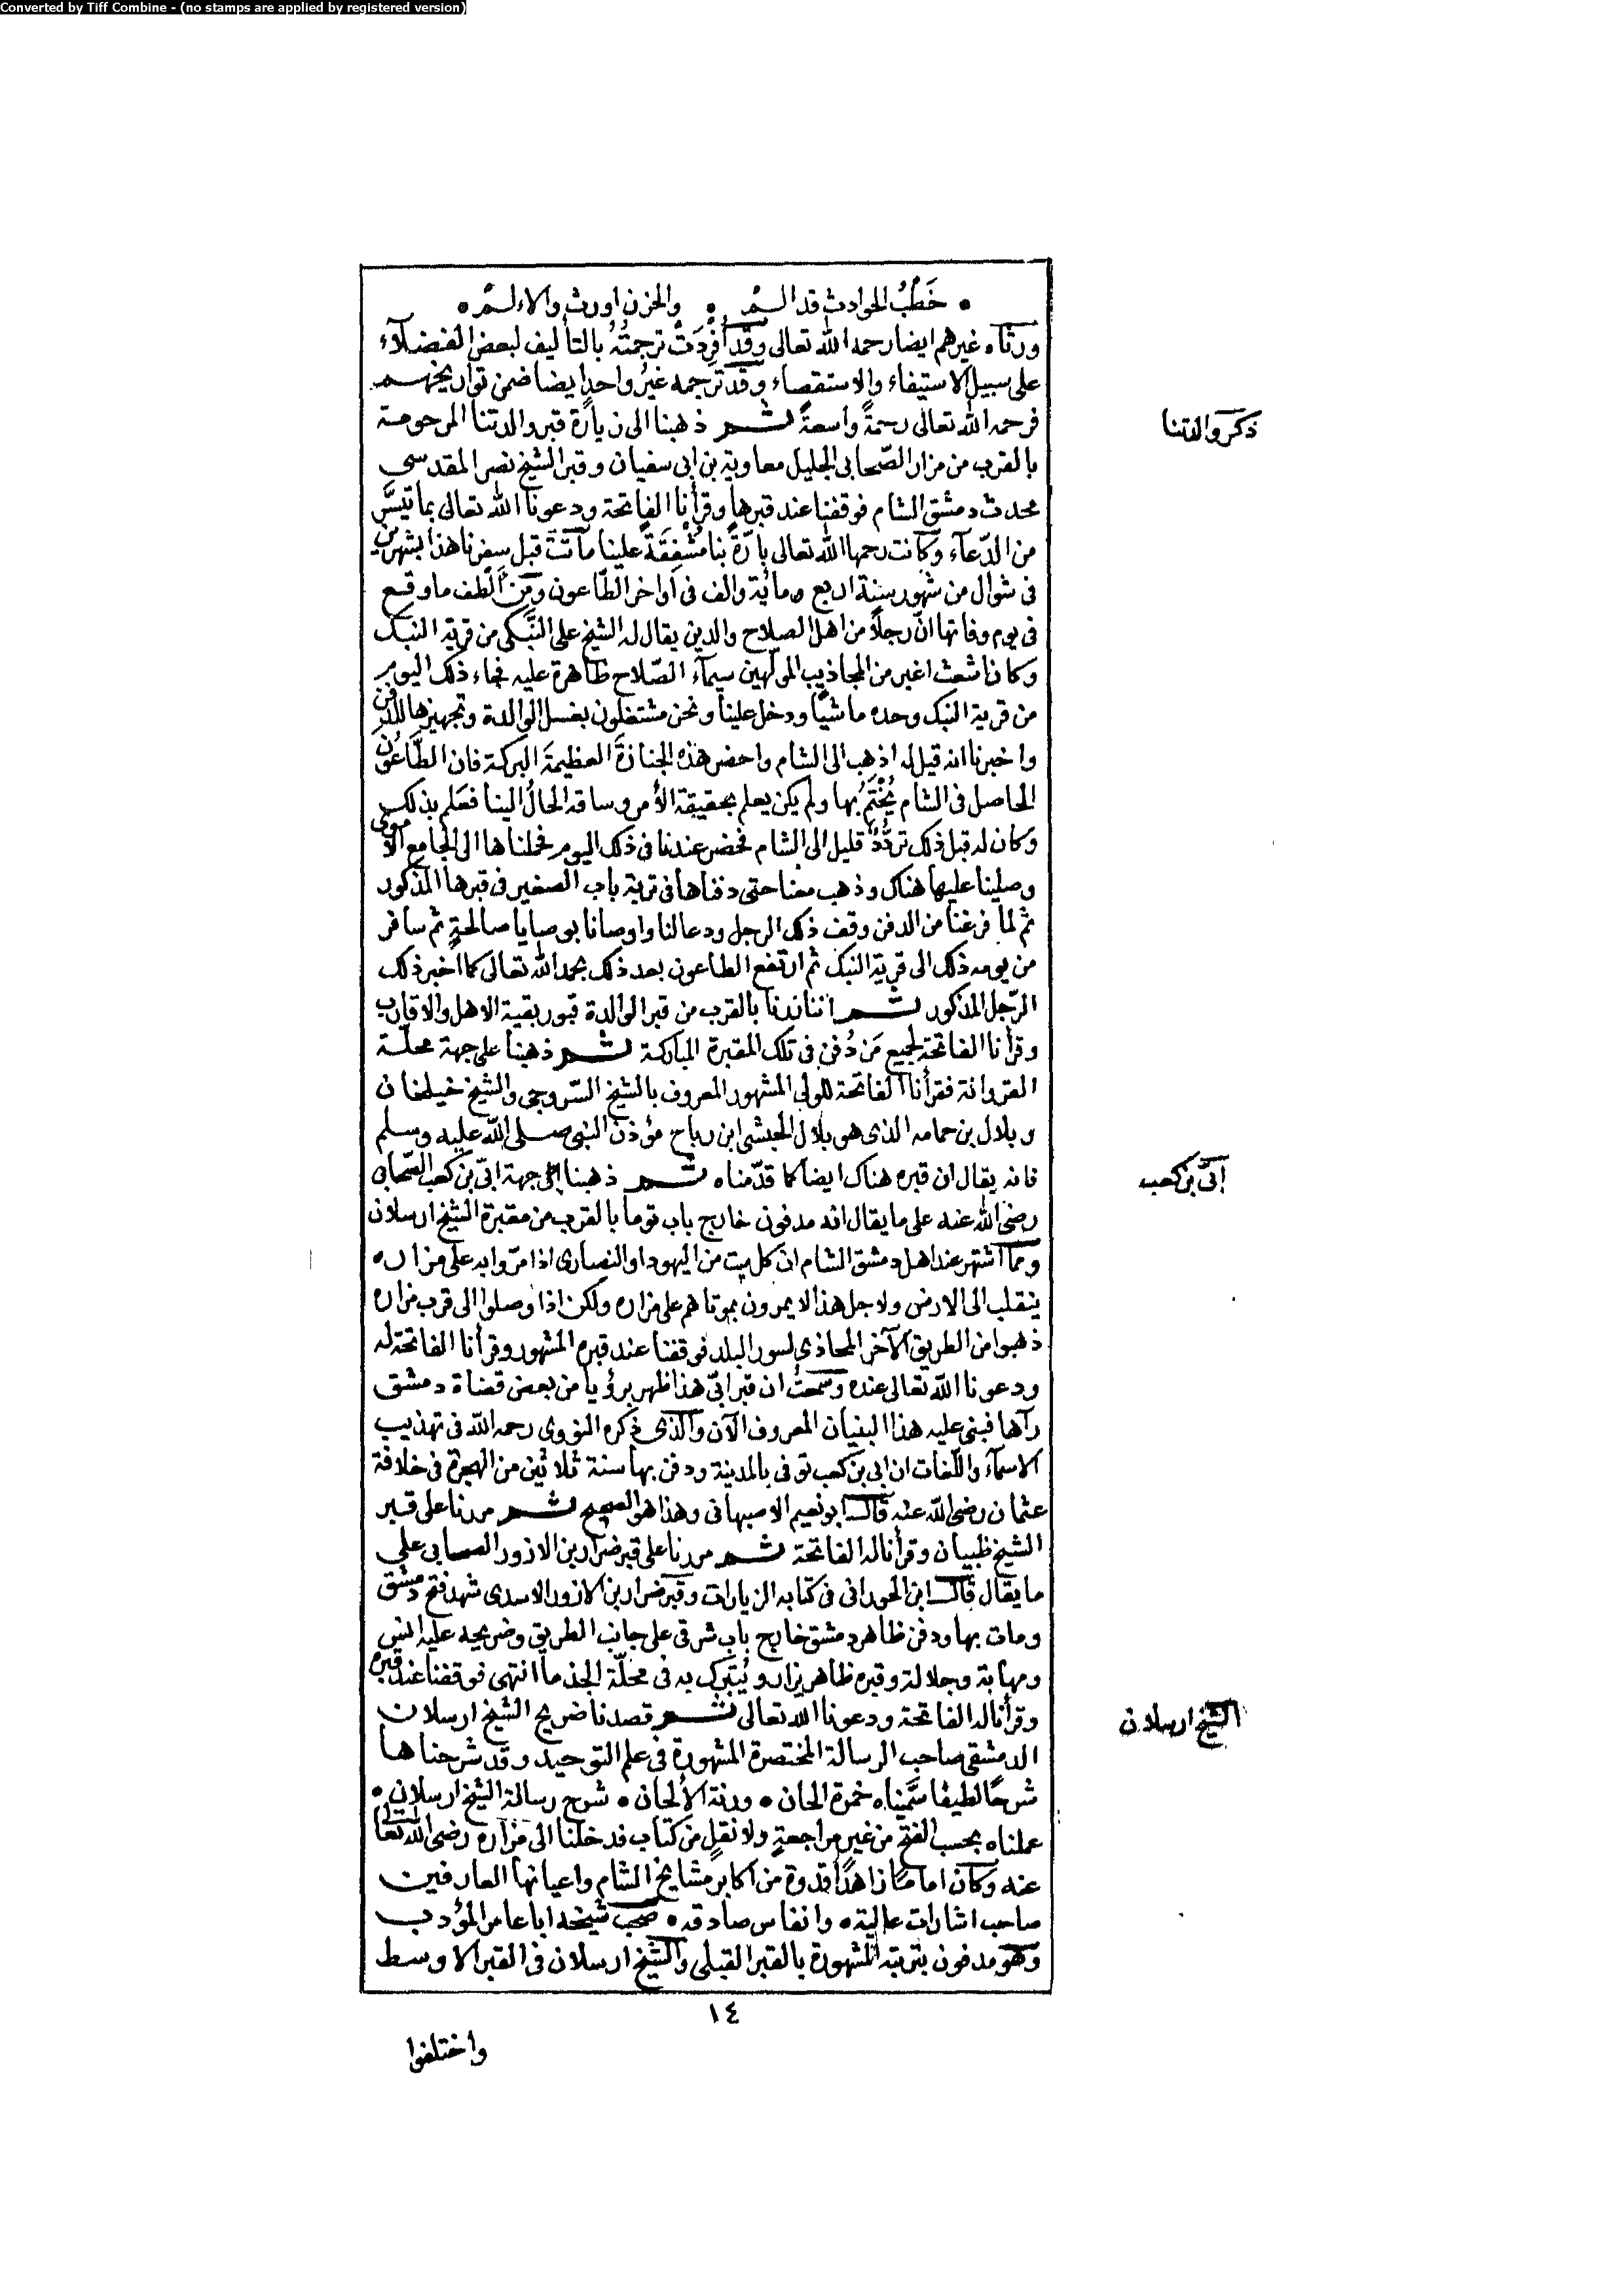 Converted by Tiff Combine - (no stamps are applied by registered version)
• خَطْبُ الحوادث قد المّ • والحزن اورث والالم •
ورثاه غيرهم ايضا رحمه الله تعالى وقد أُفرِدَتْ ترجمتُهُ بالتأليف لبعض الفضلآء
على سبيل الاستيفاء والاستقصاء وقد ترجمه غيرُ واحدٍ ايضا ضمن تواريخهم
فرحمه الله تعالى رحمةً واسعةً ثم ذهبنا الى زيارة قبر والدتنا المرحومة
ذكر والدتنا
بالقرب من مزار الصّحابى الجليل معاوية بن ابى سفيان وقبر الشيخ نصر المقدسي
محدث دمشق الشام فوقفنا عند قبرها وقرأنا الفاتحة ودعونا الله تعالى بما تيسَّر
من الدّعآء وكانت رحمها الله تعالى بارّةً بنا مُشْفِقَةً علينا ماتت قبل سفرنا هذا بشهرين
فى شوال من شهور سنة اربع ومائة والف فى اواخر الطّاعون ومن الطف ما وقع
فى يوم وفاتها انّ رجلاً من اهل الصلاح والدين يقال له الشيخ على النّبكى من قرية النبك
وكان اشعث اغبر من المجاذيب المولّهين سيمآء الصّلاح ظاهرة عليه فجاء ذلك اليوم
من قرية النبك وحده ماشيًا ودخل علينا ونحن مشتغلون بغسل الوالدة وتجهيزها للدفن
واخبرنا انه قيل له اذهب الى الشام واحضر هذه الجنازةَ العظيمةَ البركة فان الطَّاعُون
الحاصل فى الشام يُخْتَمُ بها ولم يكن يعلم بحقيقة الأمر وساقه الحالُ الينا فعلم بذلك
وكان له قبل ذلك تردُّدٌ قليل الى الشام فحضر عندنا فى ذلك اليوم فحملناها الى الجامع الأموى
وصلينا عليها هناك وذهب معنا حتى دفناها فى تربة باب الصغير فى قبرها المذكور
ثم لما فرغنا من الدفن وقف ذلك الرجل ودعا لنا واوصانا بوصايا صالحةٍ ثم سافر
من يومه ذلك الى قرية النبك ثم ارتفع الطاعون بعد ذلك بحمد الله تعالى كما اخبر ذلك
الرّجل المذكور ثم اننا زرنا بالقرب من قبر الوالدة قبور بقية الاهل والاقارب
وقرأنا الفاتحة لجميع مَن دُفن فى تلك المقبرة المباركة ثم ذهبنا على جهة محلّة
القروانة فقرأنا الفاتحة للولى المشهور المعروف بالشيخ السّروجى والشيخ خيلخان
وبلال بن حمامه الذى هو بلال الحبشى ابن رباح مؤذن النبى صلى الله عليه وسلم
فانه يقال ان قبره هناك ايضا كما قدّمناه ثم ذهبنا الى جهة ابىّ بن كعب الصّحابى
ابىّ بن كعب
رضى الله عنه على ما يقال انه مدفون خارج باب توما بالقرب من مقبرة الشيخ ارسلان
ومما اشتهر عند اهل دمشق الشام انّ كل ميت من اليهود او النصارى اذا مرّوا به على مزاره
ينقلب الى الارض ولاجل هذا لا يمرون بموتاهم على مزاره ولكن اذا وصلوا الى قرب مزاره
ذهبوا من الطريق الآخر المحاذى لسور البلد فوقفنا عند قبره المشهور وقرأنا الفاتحة له
ودعونا الله تعالى عنده وسمعتُ ان قبر ابىّ هذا ظهر برؤيا من بعض قضاة دمشق
رآها فبنى عليه هذا البنيان المعروف الآن والذى ذكره النووى رحمه الله فى تهذيب
الاسمآء واللّغات ان ابى بن كعب توفى بالمدينة ودفن بها سنة ثلاثين من الهجرة فى خلافة
عثمان رضى الله عنه قال ابو نعيم الاصبهانى وهذا هو الصحيح ثم مررنا على قبر
الشيخ ظبيان وقرأنا له الفاتحة ثم مررنا على قبر ضرار بن الازور الصحابى على
ما يقال قال ابن الحورانى فى كتابه الزيارات وقبر ضرار بن الازور الاسدى شهد فتح دمشق
ومات بها ودفن ظاهر دمشق خارج باب شرقى على جانب الطريق وضريحه عليه انس
ومهابة وجلالة وقبره ظاهر يزار ويُتبرّك به فى محلّة الجذما انتهى فوقفنا عند قبره
وقرأنا له الفاتحة ودعونا الله تعالى ثم قصدنا ضريح الشيخ ارسلان
الشيخ ارسلان
الدمشقى صاحب الرسالة المختصرة المشهورة فى علم التوحيد وقد شرحناها
شرحًا لطيفًا سمّيناه خمرة الحان • ورنة الألحان • شرح رسالة الشيخ ارسلان •
عملناه بحسب الفتح من غير مراجعةٍ ولا نقلٍ من كتاب فدخلنا الى مزاره رضى الله تعالى
عنه وكان اماما زاهدًا قدوة من اكابر مشايخ الشام واعيانها العارفين
صاحب اشارات عالية • وانفاس صادقه • صحب شيخه ابا عامر المؤدب
وهو مدفون بتربته المشهورة بالقبر القبلى والشيخ ارسلان فى القبر الاوسط
١٤
واختلفوا